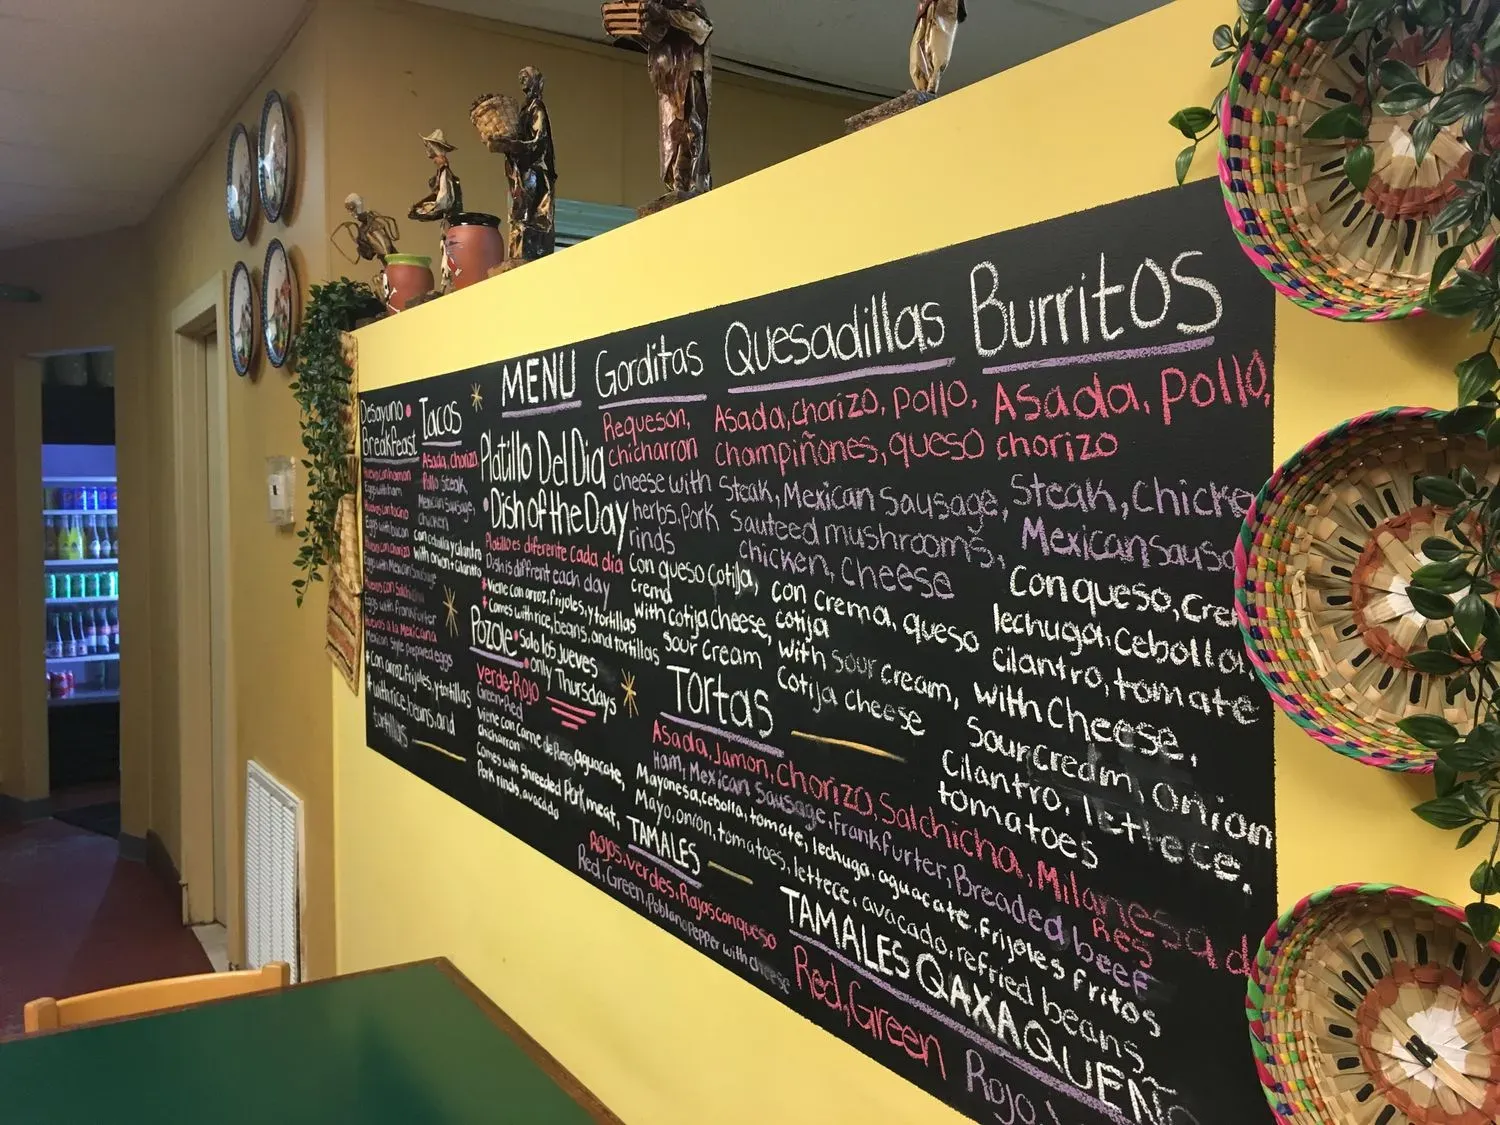 MENU
Desayuno •
Breakfeast
Huevos con Jamon
Eggs with ham
Huevos con tocino
Eggs with bacon
Huevos con chorizo
Eggs with Mexican Sausage
Huevos con Salchicha
Eggs with Frankfurter
Huevos a la Mexicana
Mexican Style prepared eggs
+ Con arroz, frijoles, y tortillas
+ with rice, beans, and
tortillas
Tacos
Asada, chorizo,
Pollo Steak,
Mexican Sausage,
chicken
con cebolla y cilantro
with onion + cilantro
Platillo Del Dia
• Dish of the Day
Platillo es diferente cada dia
Dish is diffrent each day
* Viene con arroz, frijoles, y tortillas
* Comes with rice, beans, and tortillas
Pozole • Solo los Jueves
• only Thursdays
Verde-Rojo
Green-Red
Viene con Carne de Puerco, aguacate,
chicharron
Comes with Shreeded Pork meat,
Pork rinds, avacado
Gorditas
Requeson,
chicharron
cheese with
herbs, Pork
rinds
Con queso Cotija,
crema
with cotija cheese,
sour cream
Quesadillas
Asada, chorizo, pollo,
champiñones, queso
Steak, Mexican Sausage,
Sauteed mushrooms,
chicken, cheese
con crema, queso
cotija
with sour cream,
Cotija cheese
Burritos
Asada, Pollo,
chorizo
Steak, Chicke
Mexican Sausa
Con queso, Cre
lechuga, cebolla,
cilantro, tomate
with Cheese,
Sour cream, onion
Cilantro, lettece,
tomatoes
Tortas
Asada, Jamon, Chorizo, Salchicha, Milanesa d
Res
Ham, Mexican Sausage, Frankfurter, Breaded beef
Mayonesa, cebolla, tomate, lechuga, aguacate, frijoles fritos
Mayo, onion, tomatoes, lettece, avacado, refried beans
TAMALES
Rojos, Verdes, Rajas con queso
Red, Green, Poblano Pepper with cheese
TAMALES OAXAQUEÑ
Red, Green
Rojo,